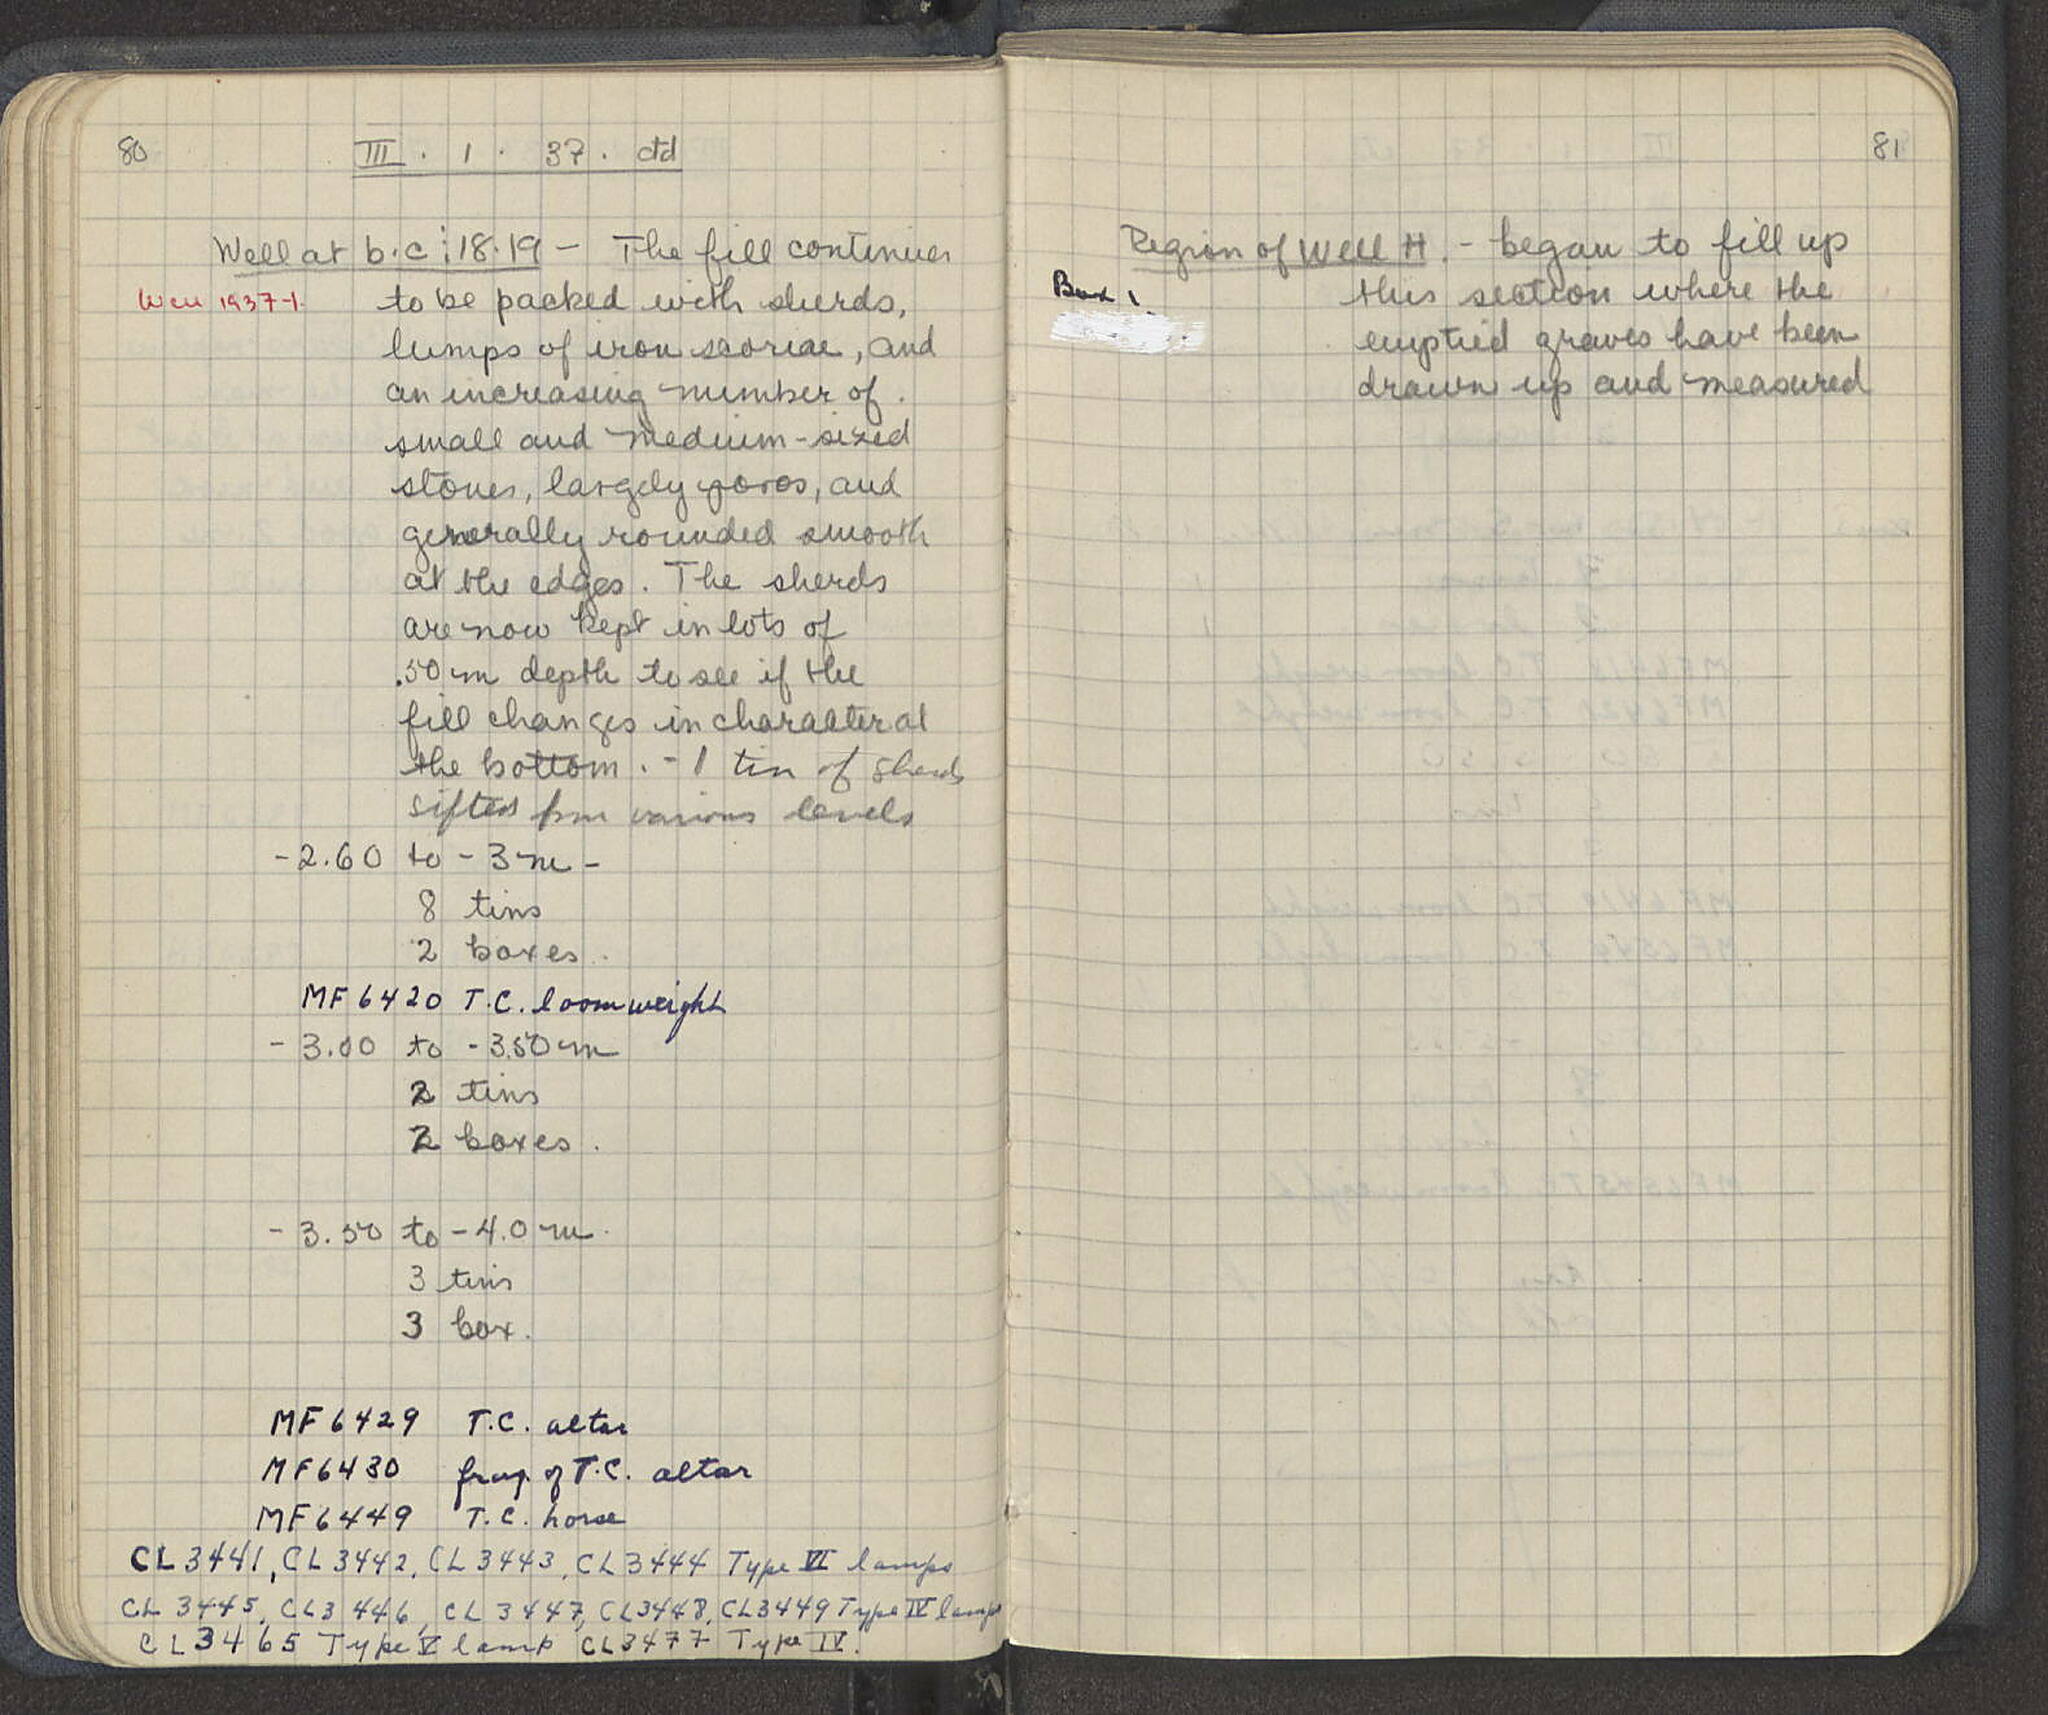 80
III . 1 . 37 . ctd
Well at b.c:18.19 - The fill continues
Well 1937-1.
to be packed with sherds,
lumps of iron scoriae, and
an increasing number of
small and medium-sized
stones, largely poros, and
generally rounded smooth
at the edges. The sherds
are now kept in lots of
.50 m depth to see if the
fill changes in character at
the bottom. - 1 tin of sherds
sifted from various levels
-2.60 to - 3 m -
8 tins
2 boxes.
MF 6420 T.C. loomweight
- 3.00 to - 3.50 m
2 tins
2 boxes.
- 3.50 to - 4.0 m.
3 tins
3 box.
MF 6429 T.C. altar
MF 6430 frag. of T.C. altar
MF 6449 T.C. horse
CL 3441, CL 3442, CL 3443, CL 3444 Type VI lamps
CL 3445, CL 3446, CL 3447, CL 3448, CL 3449 Type IV lamps
CL 3465 Type V lamp CL 3477 Type IV.
81
Region of Well H. - began to fill up
Box 1
this section where the
emptied graves have been
drawn up and measured